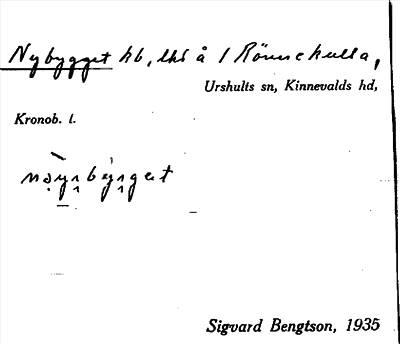 Nybygget hb, lhs å 1 Rönnekulla,
Urshults sn, Kinnevalds hd,
Kronob. l.
Sigvard Bengtson, 1935